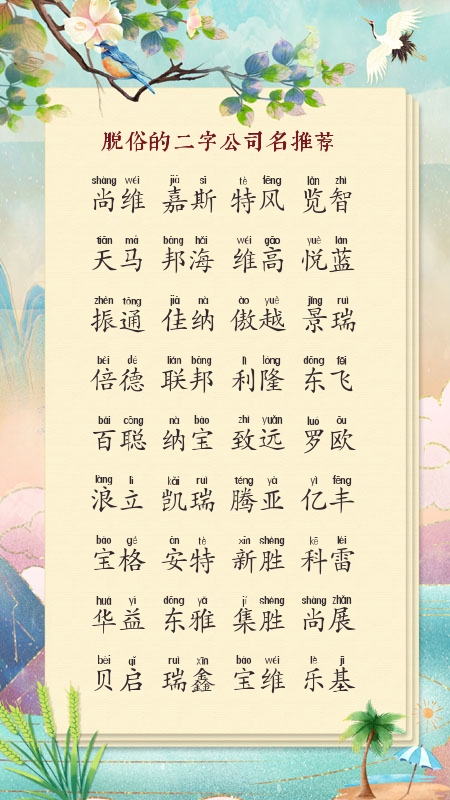 脱俗的二字公司名推荐
shàng wéi jiā sī tè fēng lǎn zhì
尚维 嘉斯 特风 览智
tiān mǎ bāng hǎi wéi gāo yuè lán
天马 邦海 维高 悦蓝
zhèn tōng jiā nà ào yuè jǐng ruì
振通 佳纳 傲越 景瑞
bèi dé lián bāng lì lóng dōng fēi
倍德 联邦 利隆 东飞
bǎi cōng nà bǎo zhì yuǎn luó ōu
百聪 纳宝 致远 罗欧
làng lì kǎi ruì téng yà yì fēng
浪立 凯瑞 腾亚 亿丰
bǎo gé ān tè xīn shèng kē léi
宝格 安特 新胜 科雷
huá yì dōng yǎ jí shèng shàng zhǎn
华益 东雅 集胜 尚展
bèi qǐ ruì xīn bǎo wéi lè jī
贝启 瑞鑫 宝维 乐基